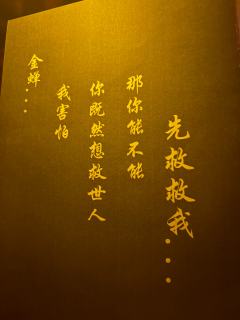 金蝉...
我害怕
你既然想救世人
那你能不能
先救救我...